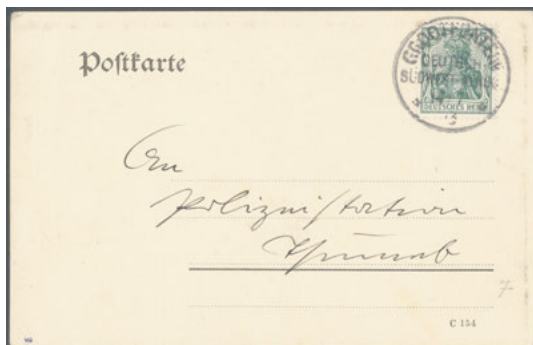 Postkarte
GROOTFONTEIN
DEUTSCH
SÜDWESTAFRIKA
DEUTSCHES REICH
An
Polizeistation
7
C 154